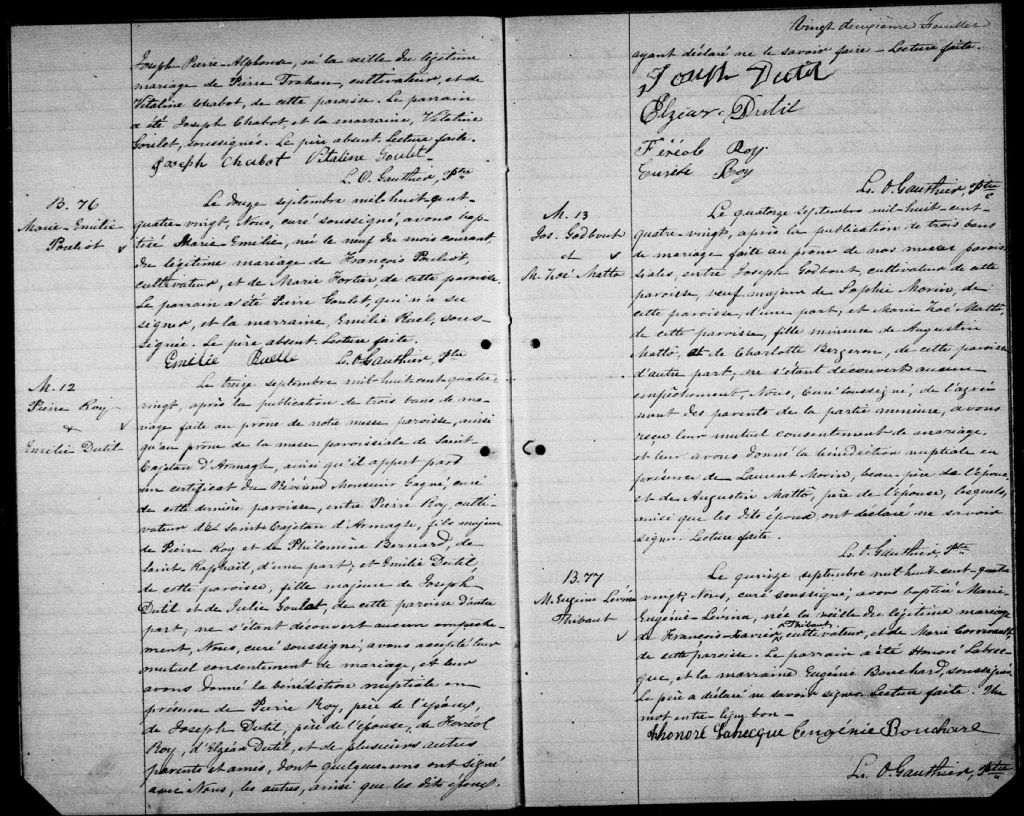 Joseph Pierre-Alphonse, né la veille du légitime
mariage de Pierre Trahan, cultivateur, et de
Vitaline Chabot, de cette paroisse. Le parrain
a été Joseph Chabot et la marraine, Vitaline
Goulet, soussignés. Le père absent. Lecture faite.
Joseph Chabot Vitaline Goulet
L. O. Gauthier, Ptre
B. 76
Marie-Emilie
Pouliot
Le douze septembre mil-huit-cent-
quatre-vingt, Nous, curé soussigné, avons bap-
tisé Marie-Emilie, née le neuf du mois courant,
du légitime mariage de François Pouliot,
cultivateur, et de Marie Fortier, de cette paroisse.
Le parrain a été Pierre Goulet, qui n'a su
signer, et la marraine, Emilie Ruel, sous-
signée. Le père absent. Lecture faite.
Emélie Ruelle L. O. Gauthier, Ptre
M. 12
Pierre Roy
&
Emilie Dutil
Le treize septembre mil-huit-cent-quatre-
vingt, après la publication de trois bans de ma-
riage faite au prône de notre messe paroisse, ainsi
qu'au prône de la messe paroissiale de Saint-
Cajetan d'Armagh, ainsi qu'il appert par
un certificat du Révérend Monsieur Gagné, curé
de cette dernière paroisse, entre Pierre Roy, culti-
vateur de Saint Cajetan d'Armagh, fils majeur
de Pierre Roy et de Philomène Bernard, de
Saint Raphaël, d'une part; et Emilie Dutil,
de cette paroisse, fille majeure de Joseph
Dutil et de Julie Goulet, de cette paroisse d'autre
part; ne s'étant découvert aucun empêche-
ment, Nous, curé soussigné, avons accepté leur
mutuel consentement de mariage, et leur
avons donné la bénédiction nuptiale en
présence de Pierre Roy, père de l'époux,
de Joseph Dutil, père de l'épouse, de Ferréol
Roy, d'Elzéar Dutil, et de plusieurs autres
parents et amis, dont quelques-uns ont signé
avec Nous, les autres, ainsi que les dits époux
Vingt deuxième Feuillet
ayant déclaré ne le savoir faire - Lecture faite.
Joseph Dutil
Elzear Dutil
Feréole Roy
Roy
L. O. Gauthier, Ptre
M. 13
Jos. Godbout
et
M. Zoé Matte
Le quatorze septembre mil-huit-cent-
quatre-vingt, après la publication de trois bans
de mariage faite au prône de nos messes parois-
siales, entre Joseph Godbout, cultivateur de cette
paroisse, veuf majeur de Sophie Morin, de
cette paroisse, d'une part, et Marie Zoé Matte,
de cette paroisse, fille mineure de Augustin
Matte, et de Charlotte Bergeron, de cette paroisse
d'autre part; ne s'étant découvert aucun
empêchement, Nous, Curé soussigné, de l'agré-
ment des parents de la partie mineure, avons
reçu leur mutuel consentement de mariage,
et leur avons donné la bénédiction nuptiale en
présence de Laurent Morin, beau-père de l'époux,
et de Augustin Matte, père de l'épouse, lesquels,
ainsi que les dits époux ont déclaré ne savoir
signer. Lecture faite.
L. O. Gauthier, Ptre
B. 77
M. Eugénie Lévina
Thibaut
Le quinze septembre mil-huit-cent-quatre
vingt, Nous, curé soussigné, avons baptisé Marie-
Eugénie-Lévina, née la veille du légitime mariage
de François-Xavier Thibaut, cultivateur, et de Marie
de cette paroisse. Le parrain a été Honoré Labec-
que, et la marraine Eugénie Bouchard, soussignés.
Le père a déclaré ne savoir signer. Lecture faite. Un
mot entre-ligne bon -
Honoré Labecque Eugénie Bouchard
L. O. Gauthier, Ptre